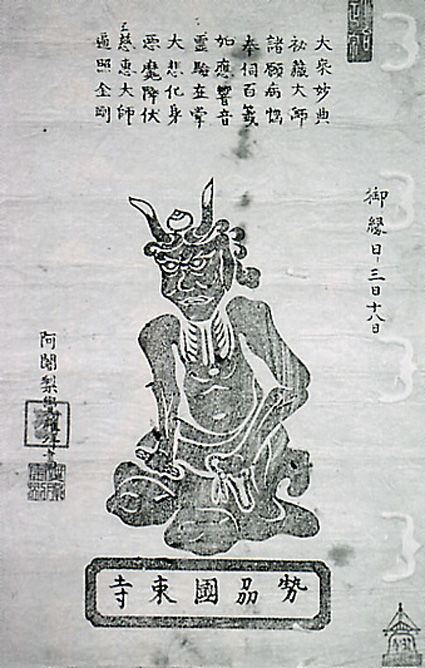 大乗妙典
祕藏大師
諸願病惱
奉伺百籤
如應響音
靈驗立掌
大悲化身
悪魔降伏
慈惠大師
遍照金剛
御縁日三日十八日
阿闍梨
勢刕國束寺